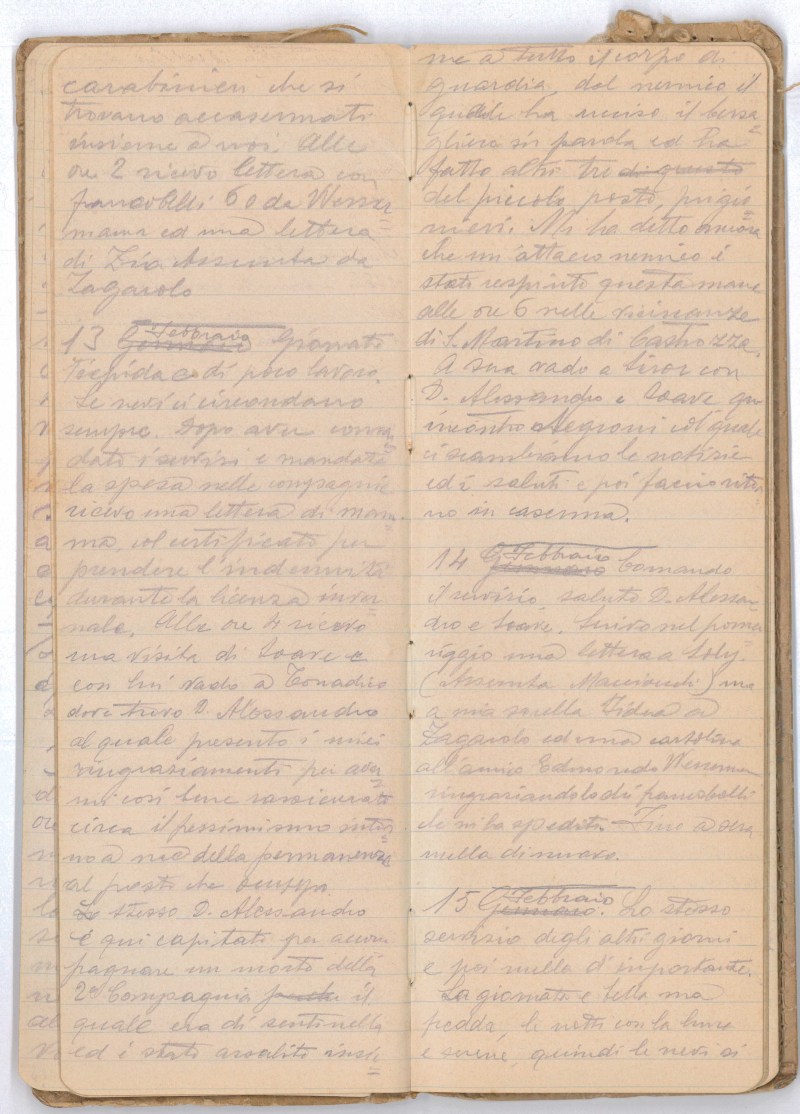 carabinieri che si
trovano accasermati
insieme a noi. Alle
ore 2 ricevo lettera con
francobolli 60 da Wesser=
mann ed una lettera
di Zia Assunta da
Zagarolo
13 Febbraio Gennaio Giornata
tiepida e di poco lavoro.
Le nevi ci circondano
sempre. Dopo aver coman=
dato i servizi e mandata
la spesa nelle compagnie
ricevo una lettera di mam=
ma, col certificato per
prendere l'indennità
durante la licenza inver=
nale. Alle ore 4 ricevo
una visita di Soave e
con lui vado a Tonadico
dove trovo D. Alessandro
al quale presento i miei
ringraziamenti per aver=
mi così bene rassicurato
circa il pessimismo intor=
no a me della permanenza
al posto che occupo.
Lo stesso D. Alessandro
è qui capitato per accom=
pagnare un morto della
2a Compagnia il
quale era di sentinella
ed è stato assalito insie=
me a tutto il corpo di
guardia, dal nemico il
quale ha ucciso il bersa=
gliere sin parola ed ha
fatto altri tre di questo
del piccolo posto, prigio=
nieri. Mi ha detto ancora
che un'attacco nemico è
stato respinto questa mane
alle ore 6 nelle vicinanze
di S. Martino di Castrozza.
A sera vado a Siror con
D. Alessandro e Soave qui
incontro Negroni col quale
ci scambiamo le notizie
ed i saluti e poi faccio ritor=
no in caserma.
14 Febbraio Gennaio Comando
il servizio saluto D. Alessan=
dro e Soave. Scrivo nel pome=
riggio una lettera a
(Assunta) una
a mia sorella a
Zagarolo ed una cartolina
all'amico Edmondo Wesserman
ringraziandolo di francobolli
che mi ha spedito. Fino a sera
nulla di nuovo.
15 Febbraio Gennaio. Lo stesso
servizio degli altri giorni
e poi nulla d'importante.
La giornata è bella ma
fredda, le notti con la luna
e serene, quindi le nevi si